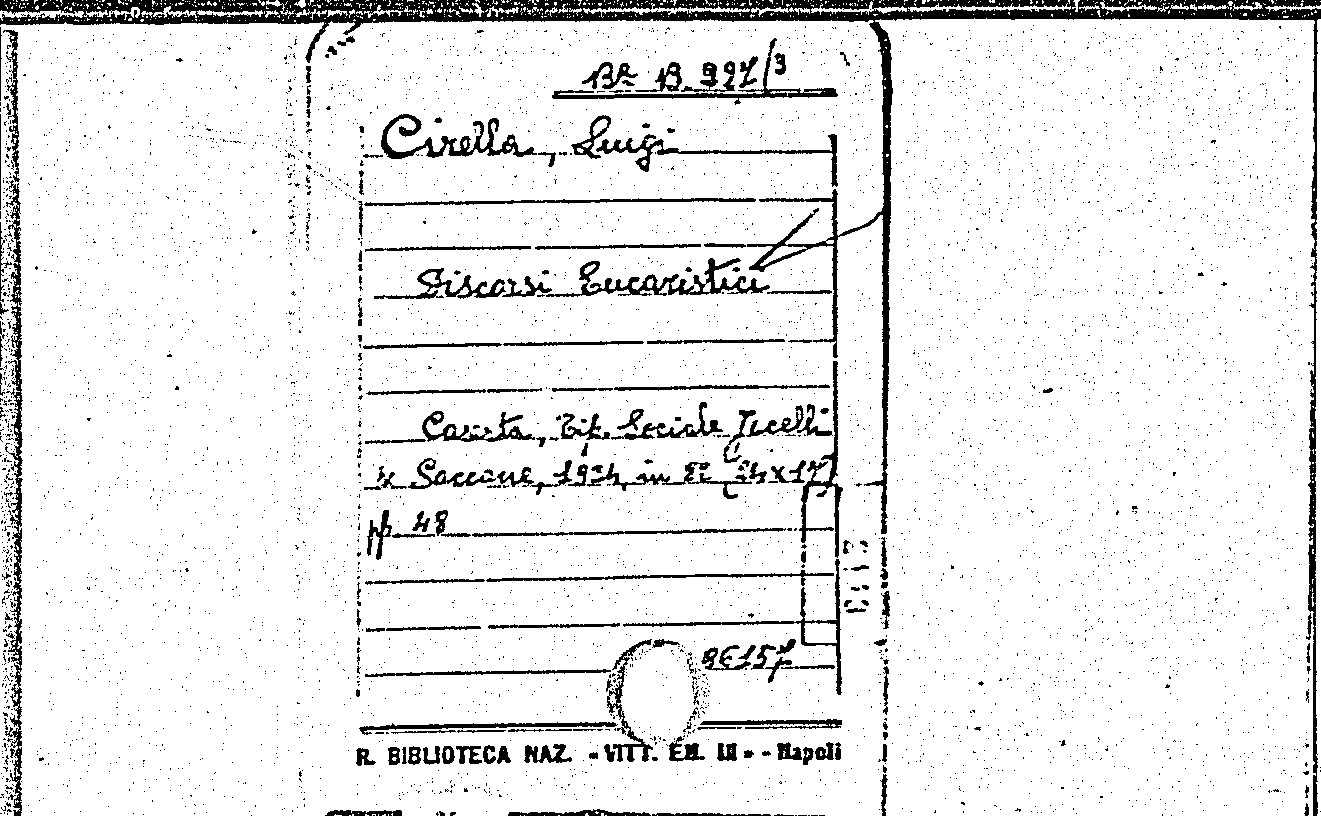 Bª B. 997/3
Cirella, Luigi
Discorsi Eucaristici
Caserta, Tip. Sociale Jecelli
& Saccone, 1934, in 8º (24x17)
pp. 48
R. BIBLIOTECA NAZ. - VITT. EM. III - - Napoli